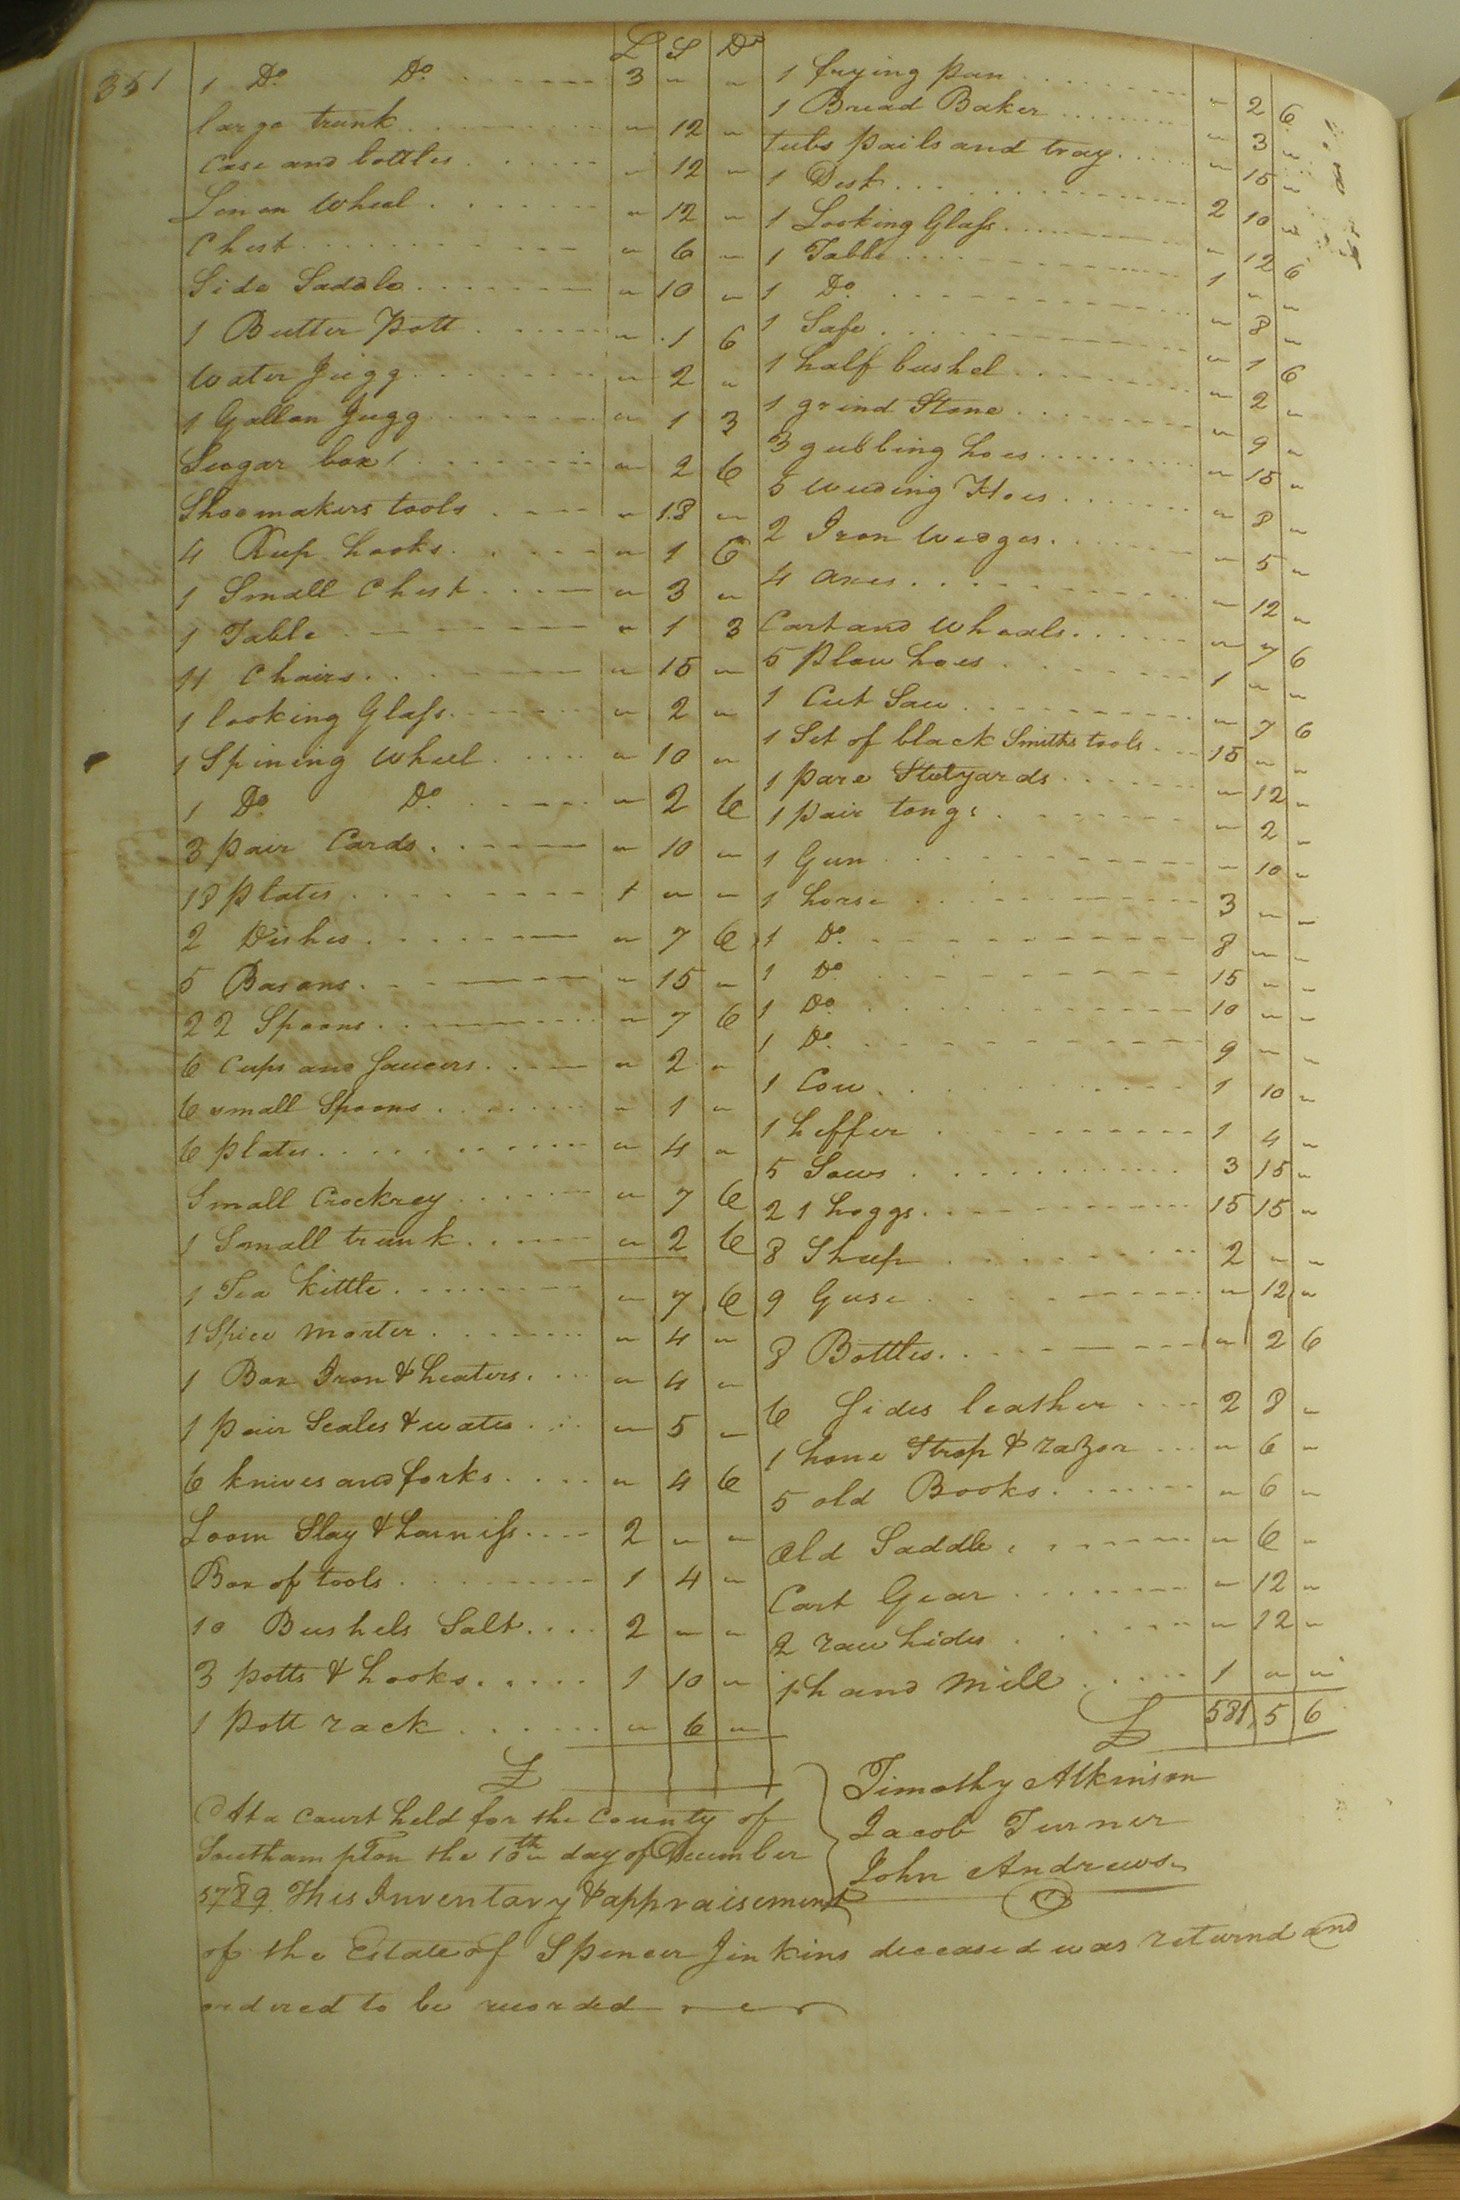 351
L S Do
1 Do Do 3 " "
large trunk " 12 "
Case and bottles " 12 "
Linen Wheel " 12 "
Chest " 6 "
Side Saddle " 10 "
1 Butter Pott " 1 6
Water Jugg " 2 "
1 Gallon Jugg " 1 3
Sugar box " 2 6
Shoemakers tools " 18 "
4 Reep hooks " 1 6
1 Small Chest " 3 "
1 Table " 1 3
11 Chairs " 15 "
1 looking Glass " 2 "
1 Spining Wheel " 10 "
1 Do Do " 2 6
3 pair Cards " 10 "
18 plates 1 " "
2 Dishes " 7 6
5 Basons " 15 "
22 Spoons " 7 6
6 Cups and Saucers " 2 "
6 small Spoons " 1 "
6 plates " 4 "
Small Crockrey " 7 6
1 Small trunk " 2 6
1 Tea Kittle " 7 6
1 Spice Morter " 4 "
1 Box Iron & heaters " 4 "
1 pair Scales & wates " 5 "
6 knives and forks " 4 6
Loom Slay & harniss 2 " "
Box of tools 1 4 "
10 Bushels Salt 2 " "
3 potts & hooks 1 10 "
1 Pott rack " 6 "
£
1 frying pan " 2 6
1 Bread Baker " 3 "
tubs pails and tray " 15 "
1 Desk 2 10 "
1 Looking Glass " 12 6
1 Table 1 " "
1 Do " 8 "
1 Safe " 1 6
1 half bushel " 2 "
1 grind Stone " 9 "
3 gubbing hoes " 15 "
5 weeding Hoes " 8 "
2 Iron Wedges " 5 "
4 axes " 12 "
Cart and Wheals " 7 6
5 Plow hoes 1 " "
1 Cut Saw " 7 6
1 Set of black Smiths tools 15 " "
1 pare Stelyards " 12 "
1 pair tongs " 2 "
1 Gun " 10 "
1 horse 3 " "
1 Do 8 " "
1 Do 15 " "
1 Do 10 " "
1 Do 9 " "
1 Cow 1 10 "
1 heffer 1 4 "
5 Sows 3 15 "
21 hoggs 15 15 "
8 Sheep 2 " "
9 Geese " 12 "
8 Bottles " 2 6
6 Sides leather 2 8 "
1 hone Strop & razor " 6 "
5 old Books " 6 "
Old Saddle " 6 "
Cart Gear " 12 "
2 raw hides " 12 "
1 hand Mill 1 " "
£ 581 5 6
Timothy Atkinson
Jacob Turner
John Andrews
At a Court held for the County of
Southampton the 10th day of December
1789 This Inventary & appraisement
of the Estate of Spencer Jinkins deceased was returnd and
ordered to be recorded